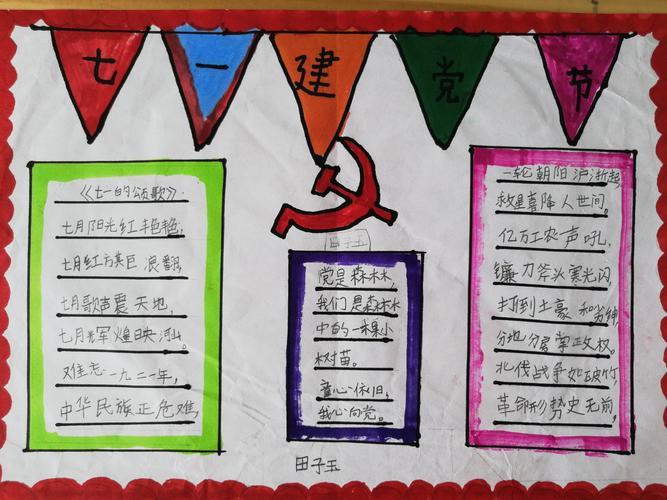 七一建党节
《七一的颂歌》.
七月阳光红艳艳,
七月红方其巨浪翻,
七月歌声震天地,
七月光军煌映河山。
难忘一九二一年,
中华民族正危难,
田子玉
党是森林,
我们是森林
中的一棵小
树苗。
童心依旧,
我心向党。
一轮朝阳沪浙起,
救星喜降人世间。
亿万工农一声吼,
镰刀斧头寒光闪,
打倒土豪和劣绅,
分地分房掌政权。
北伐战争如破竹
革命形势史无前,
田子玉